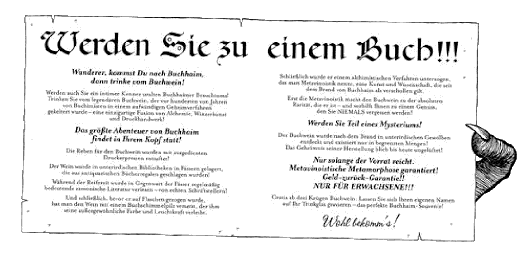 Werden Sie zu einem Buch!!!
Wanderer, kommst Du nach Buchhaim,
dann trinke vom Buchwein!
Werden auch Sie ein intimer Kenner uralten Buchhaimer Brauchtums!
Trinken Sie vom legendären Buchwein, der vor hunderten von Jahren
von Buchimisten in einem aufwändigen Geheimverfahren
gekeltert wurde – eine einzigartige Fusion aus Alchemie, Winzerkunst
und Druckhandwerk!
Das größte Abenteuer von Buchhaim
findet in Ihrem Kopf statt!
Die Reben für den Buchwein wurden mit ausgedienten
Druckerpressen entsaftet!
Der Wein wurde in unterirdischen Bibliotheken in Fässern gelagert,
die aus antiquarischen Bücherregalen geschlagen wurden!
Während der Reifezeit wurde in Gegenwart der Fässer regelmäßig
bedeutende zamonische Literatur verlesen – von echten Schriftstellern!
Und schließlich, bevor er auf Flaschen gezogen wurde,
hat man den Wein mit einem Buchschimmelpilz versetzt, der ihm
seine außergewöhnliche Farbe und Leuchtkraft verleiht.
Schließlich wurde er einem alchimistischen Verfahren unterzogen,
das man Metavinotistik nennt, eine Kunst und Wissenschaft, die seit
dem Brand von Buchhaim als verschollen gilt.
Erst die Metavinotistik macht den Buchwein zu der absoluten
Rarität, die er ist – und verhilft Ihnen zu einem Genuss,
den Sie NIEMALS vergessen werden!
Werden Sie Teil eines Mysteriums!
Der Buchwein wurde nach dem Brand in unterirdischen Gewölben
entdeckt und existiert nur in begrenzten Mengen!
Das Geheimnis seiner Herstellung blieb bis heute ungelüftet!
Nur solange der Vorrat reicht.
Metavinotistische Metamorphose garantiert!
Geld-zurück-Garantie!!
NUR FÜR ERWACHSENE!!!
Gratis ab drei Krügen Buchwein: Lassen Sie sich Ihren eigenen Namen
auf Ihr Trinkglas gravieren – das perfekte Buchhaim-Souvenir!
Wohl bekomm's!